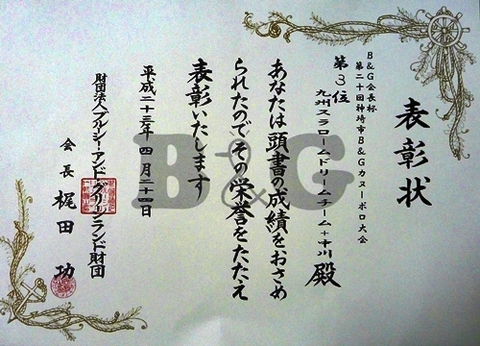 表彰状
B&G会長杯
第二十回神埼市B&Gカヌーポロ大会
第3位
九州スラロームドリームチーム+十川 殿
あなたは頭書の成績をおさめ
られたのでその栄誉をたたえ
表彰いたします
平成二十三年四月二十四日
財団法人ブルーシー・アンド・グリーンランド財団
会長 梶田 功
B&G